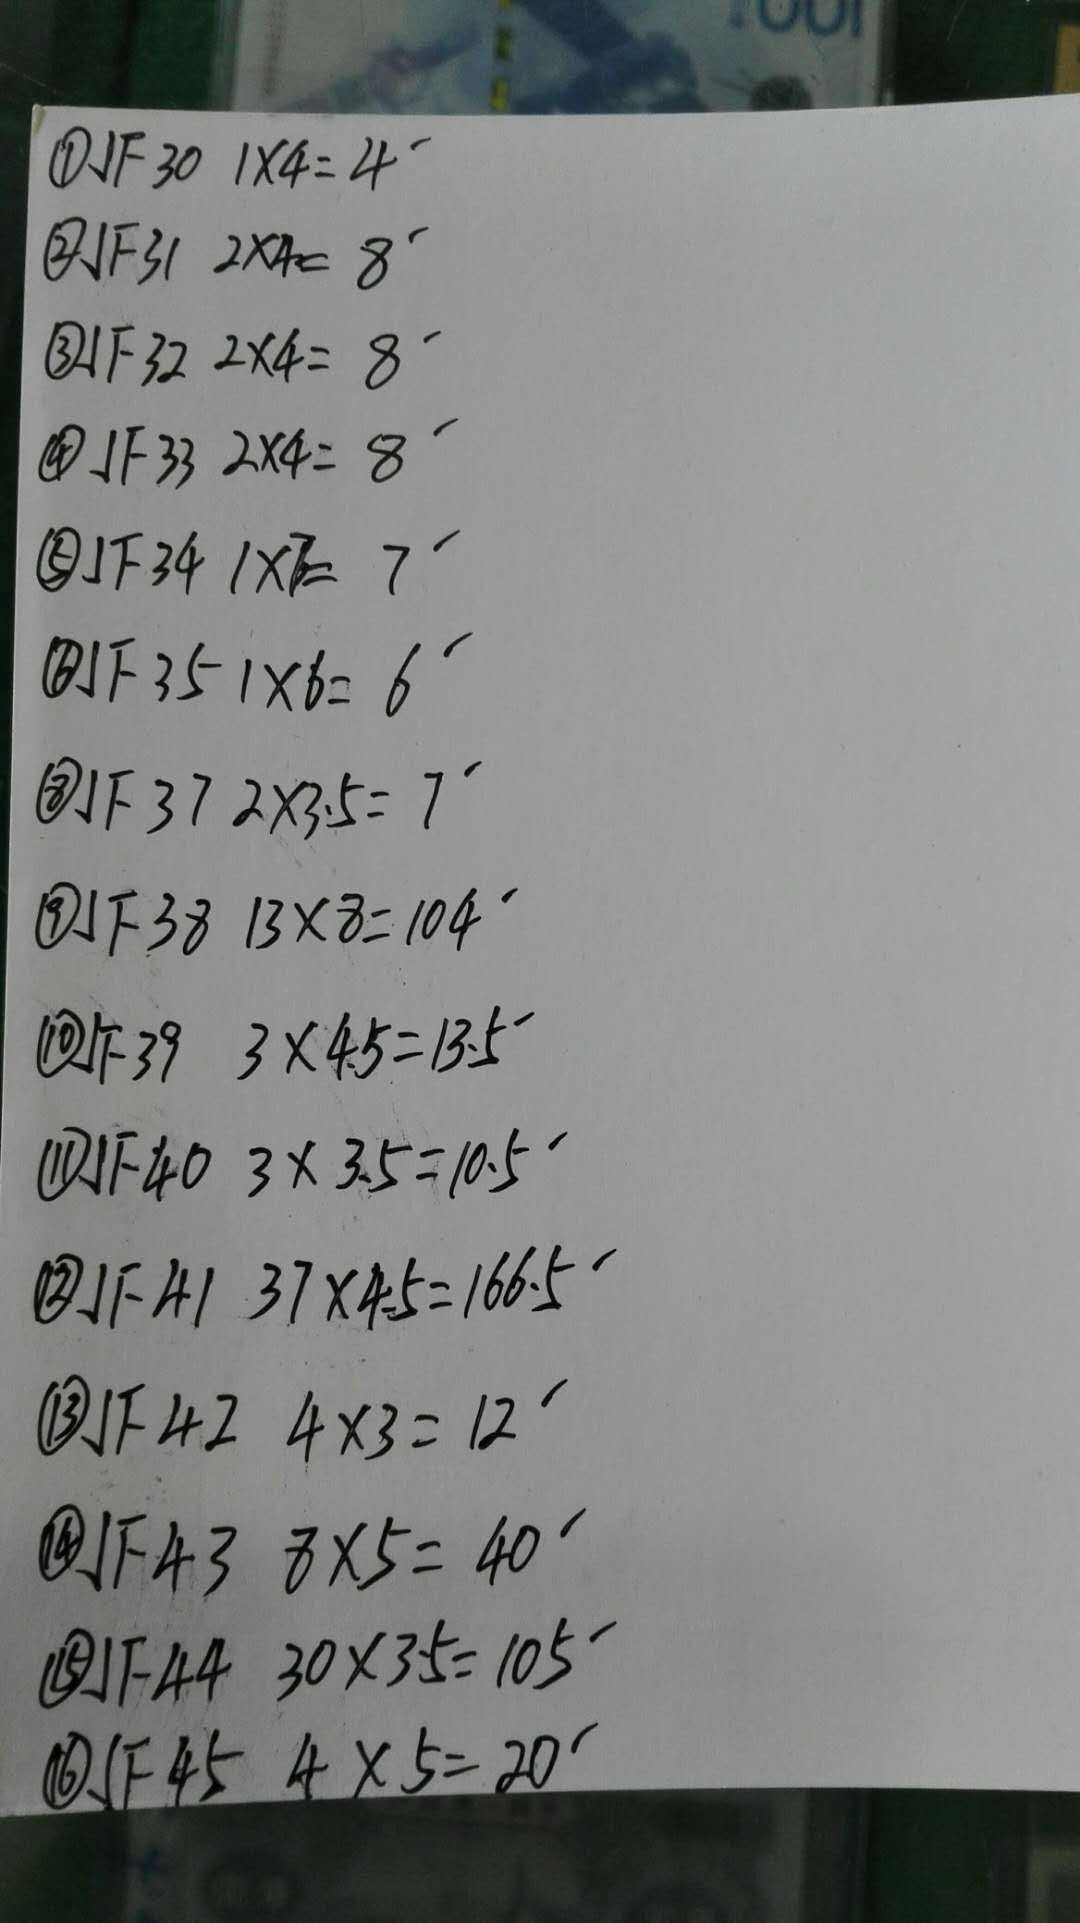 100
①JF30 1×4=4
②JF31 2×4=8
③JF32 2×4=8
④JF33 2×4=8
⑤JF34 1×7=7
⑥JF35 1×6=6
⑧JF37 2×3.5=7
⑨JF38 13×8=104
⑩JF39 3×4.5=13.5
⑪JF40 3×3.5=10.5
⑫JF41 37×4.5=166.5
⑬JF42 4×3=12
⑭JF43 8×5=40
⑮JF44 30×3.5=105
⑯JF45 4×5=20